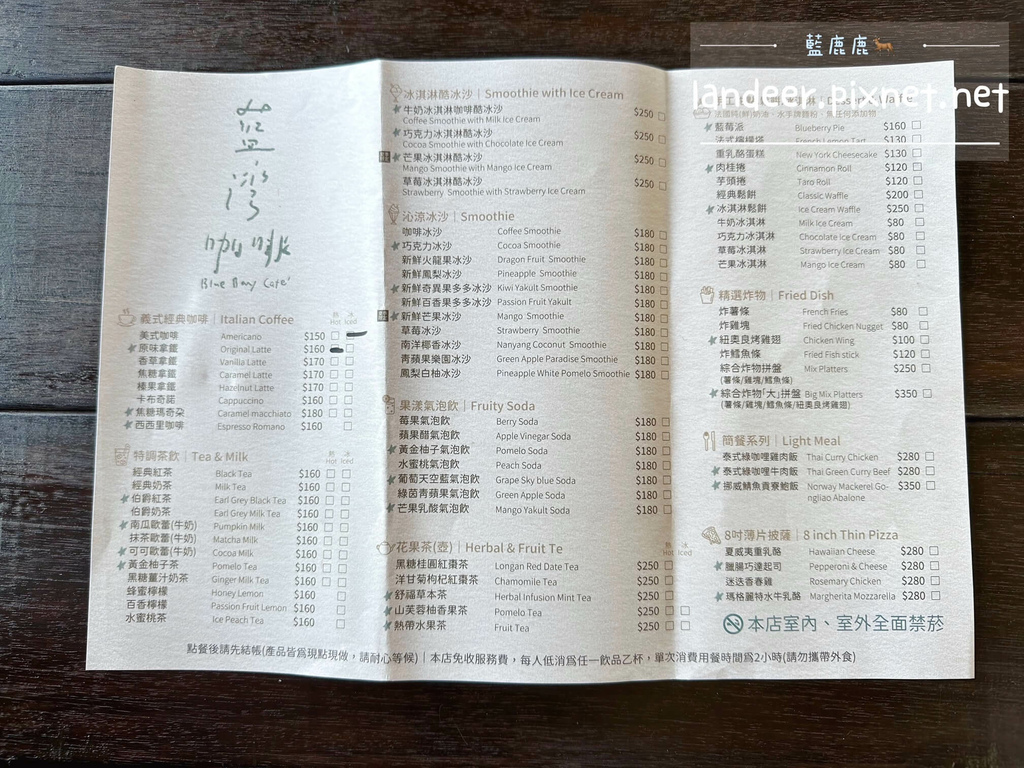 藍鹿鹿
landeer.pixnet.net
藍灣
咖啡
Blue Bay Café
義式經典咖啡 | Italian Coffee 熱 Hot 冰 Iced
美式咖啡 Americano $150
原味拿鐵 Original Latte $160
香草拿鐵 Vanilla Latte $170
焦糖拿鐵 Caramel Latte $170
榛果拿鐵 Hazelnut Latte $170
卡布奇諾 Cappuccino $160
焦糖瑪奇朵 Caramel macchiato $180
西西里咖啡 Espresso Romano $160
特調茶飲 | Tea & Milk 熱 Hot 冰 Iced
經典紅茶 Black Tea $160
經典奶茶 Milk Tea $160
伯爵紅茶 Earl Grey Black Tea $160
伯爵奶茶 Earl Grey Milk Tea $160
南瓜歐蕾(牛奶) Pumpkin Milk $160
抹茶歐蕾(牛奶) Matcha Milk $160
可可歐蕾(牛奶) Cocoa Milk $160
黃金柚子茶 Pomelo Tea $160
黑糖薑汁奶茶 Ginger Milk Tea $160
蜂蜜檸檬 Honey Lemon $160
百香檸檬 Passion Fruit Lemon $160
水蜜桃茶 Ice Peach Tea $160
冰淇淋酷冰沙 | Smoothie with Ice Cream
牛奶冰淇淋咖啡酷冰沙 $250
Coffee Smoothie with Milk Ice Cream
巧克力冰淇淋酷冰沙 $250
Cocoa Smoothie with Chocolate Ice Cream
芒果冰淇淋酷冰沙 $250
Mango Smoothie with Mango Ice Cream
草莓冰淇淋酷冰沙 $250
Strawberry Smoothie with Strawberry Ice Cream
沁涼冰沙 | Smoothie
咖啡冰沙 Coffee Smoothie $180
巧克力冰沙 Cocoa Smoothie $180
新鮮火龍果冰沙 Dragon Fruit Smoothie $180
新鮮鳳梨冰沙 Pineapple Smoothie $180
新鮮奇異果多多冰沙 Kiwi Yakult Smoothie $180
新鮮百香果多多冰沙 Passion Fruit Yakult $180
新鮮芒果冰沙 Mango Smoothie $180
草莓冰沙 Strawberry Smoothie $180
南洋椰香冰沙 Nanyang Coconut Smoothie $180
青蘋果樂園冰沙 Green Apple Paradise Smoothie $180
鳳梨白柚冰沙 Pineapple White Pomelo Smoothie $180
果漾氣泡飲 | Fruity Soda
莓果氣泡飲 Berry Soda $180
蘋果醋氣泡飲 Apple Vinegar Soda $180
黃金柚子氣泡飲 Pomelo Soda $180
水蜜桃氣泡飲 Peach Soda $180
葡萄天空藍氣泡飲 Grape Sky blue Soda $180
綠茵青蘋果氣泡飲 Green Apple Soda $180
芒果乳酸氣泡飲 Mango Yakult Soda $180
花果茶(壺) | Herbal & Fruit Te 熱 Hot 冰 Iced
黑糖桂圓紅棗茶 Longan Red Date Tea $250
洋甘菊枸杞紅棗茶 Chamomile Tea $250
舒福草本茶 Herbal Infusion Mint Tea $250
山芙蓉柚香果茶 Pomelo Tea $250
熱帶水果茶 Fruit Tea $250
藍莓派 Blueberry Pie $160
法式檸檬塔 French Lemon Tart $130
重乳酪蛋糕 New York Cheesecake $130
肉桂捲 Cinnamon Roll $120
芋頭捲 Taro Roll $120
經典鬆餅 Classic Waffle $200
冰淇淋鬆餅 Ice Cream Waffle $250
牛奶冰淇淋 Milk Ice Cream $80
巧克力冰淇淋 Chocolate Ice Cream $80
草莓冰淇淋 Strawberry Ice Cream $80
芒果冰淇淋 Mango Ice Cream $80
精選炸物 | Fried Dish
炸薯條 French Fries $80
炸雞塊 Fried Chicken Nugget $80
紐奧良烤雞翅 Chicken Wing $100
炸鱈魚條 Fried Fish stick $120
綜合炸物拼盤 Mix Platters $250
(薯條/雞塊/鱈魚條)
綜合炸物「大」拼盤 Big Mix Platters $350
(薯條/雞塊/鱈魚條/紐奧良烤雞翅)
簡餐系列 | Light Meal
泰式綠咖哩雞肉飯 Thai Curry Chicken $280
泰式綠咖哩牛肉飯 Thai Green Curry Beef $280
挪威鯖魚貢寮鮑飯 Norway Mackerel Go- $350
ngliao Abalone
8吋薄片披薩 | 8 inch Thin Pizza
夏威夷重乳酪 Hawaiian Cheese $280
臘腸巧達起司 Pepperoni & Cheese $280
迷迭香春雞 Rosemary Chicken $280
瑪格麗特水牛乳酪 Margherita Mozzarella $280
本店室內、室外全面禁菸
點餐後請先結帳(產品皆爲現點現做，請耐心等候) | 本店免收服務費，每人低消爲任一飲品乙杯，單次消費用餐時間爲2小時(請勿攜帶外食)